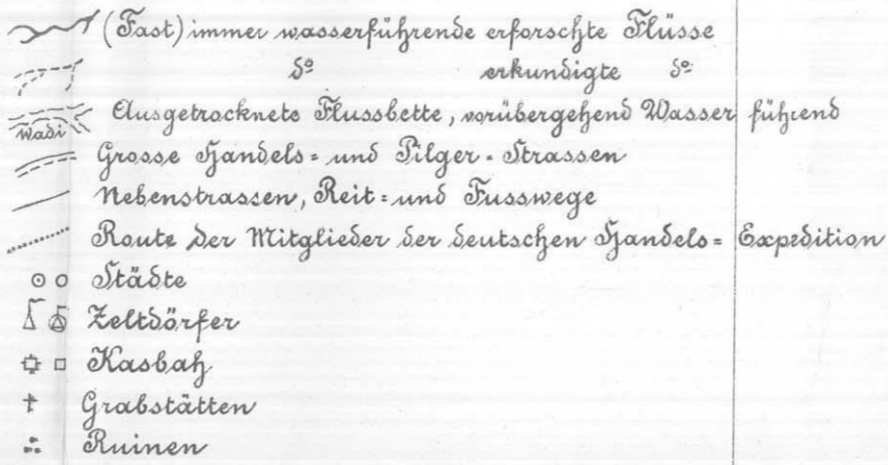 (Fast) immer wasserführende erforschte Flüsse
do erkundigte do
Ausgetrocknete Flussbette, vorübergehend Wasser führend
Wadi
Grosse Handels- und Pilger-Strassen
Nebenstrassen, Reit- und Fusswege
Route der Mitglieder der deutschen Handels-Expedition
Städte
Zeltdörfer
Kasbah
Grabstätten
Ruinen